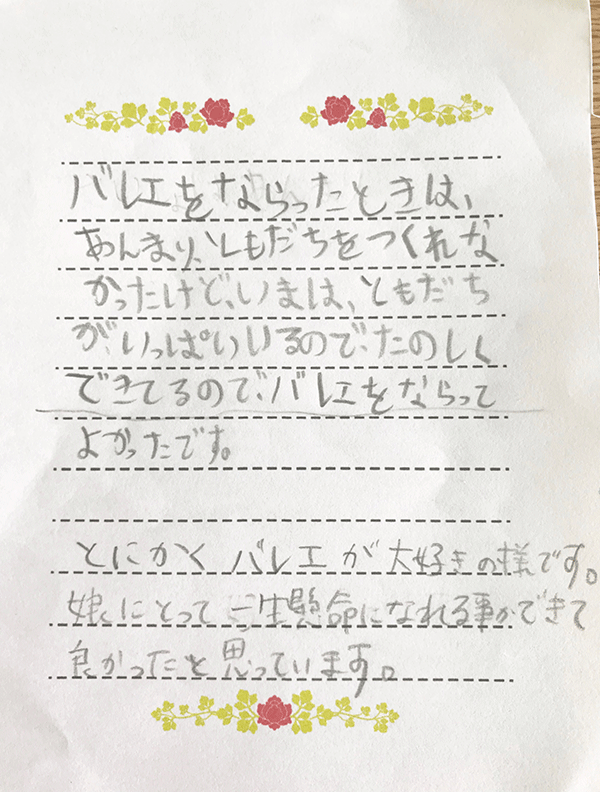 バレエをならったときは、
あんまり、ともだちをつくれな
かったけど、いまは、ともだち
が、いっぱいいるので、たのしく
できてるので、バレエをならって
よかったです。
とにかくバレエが大好きの様です。
娘にとって一生懸命になれる事ができて
良かったと思っています。